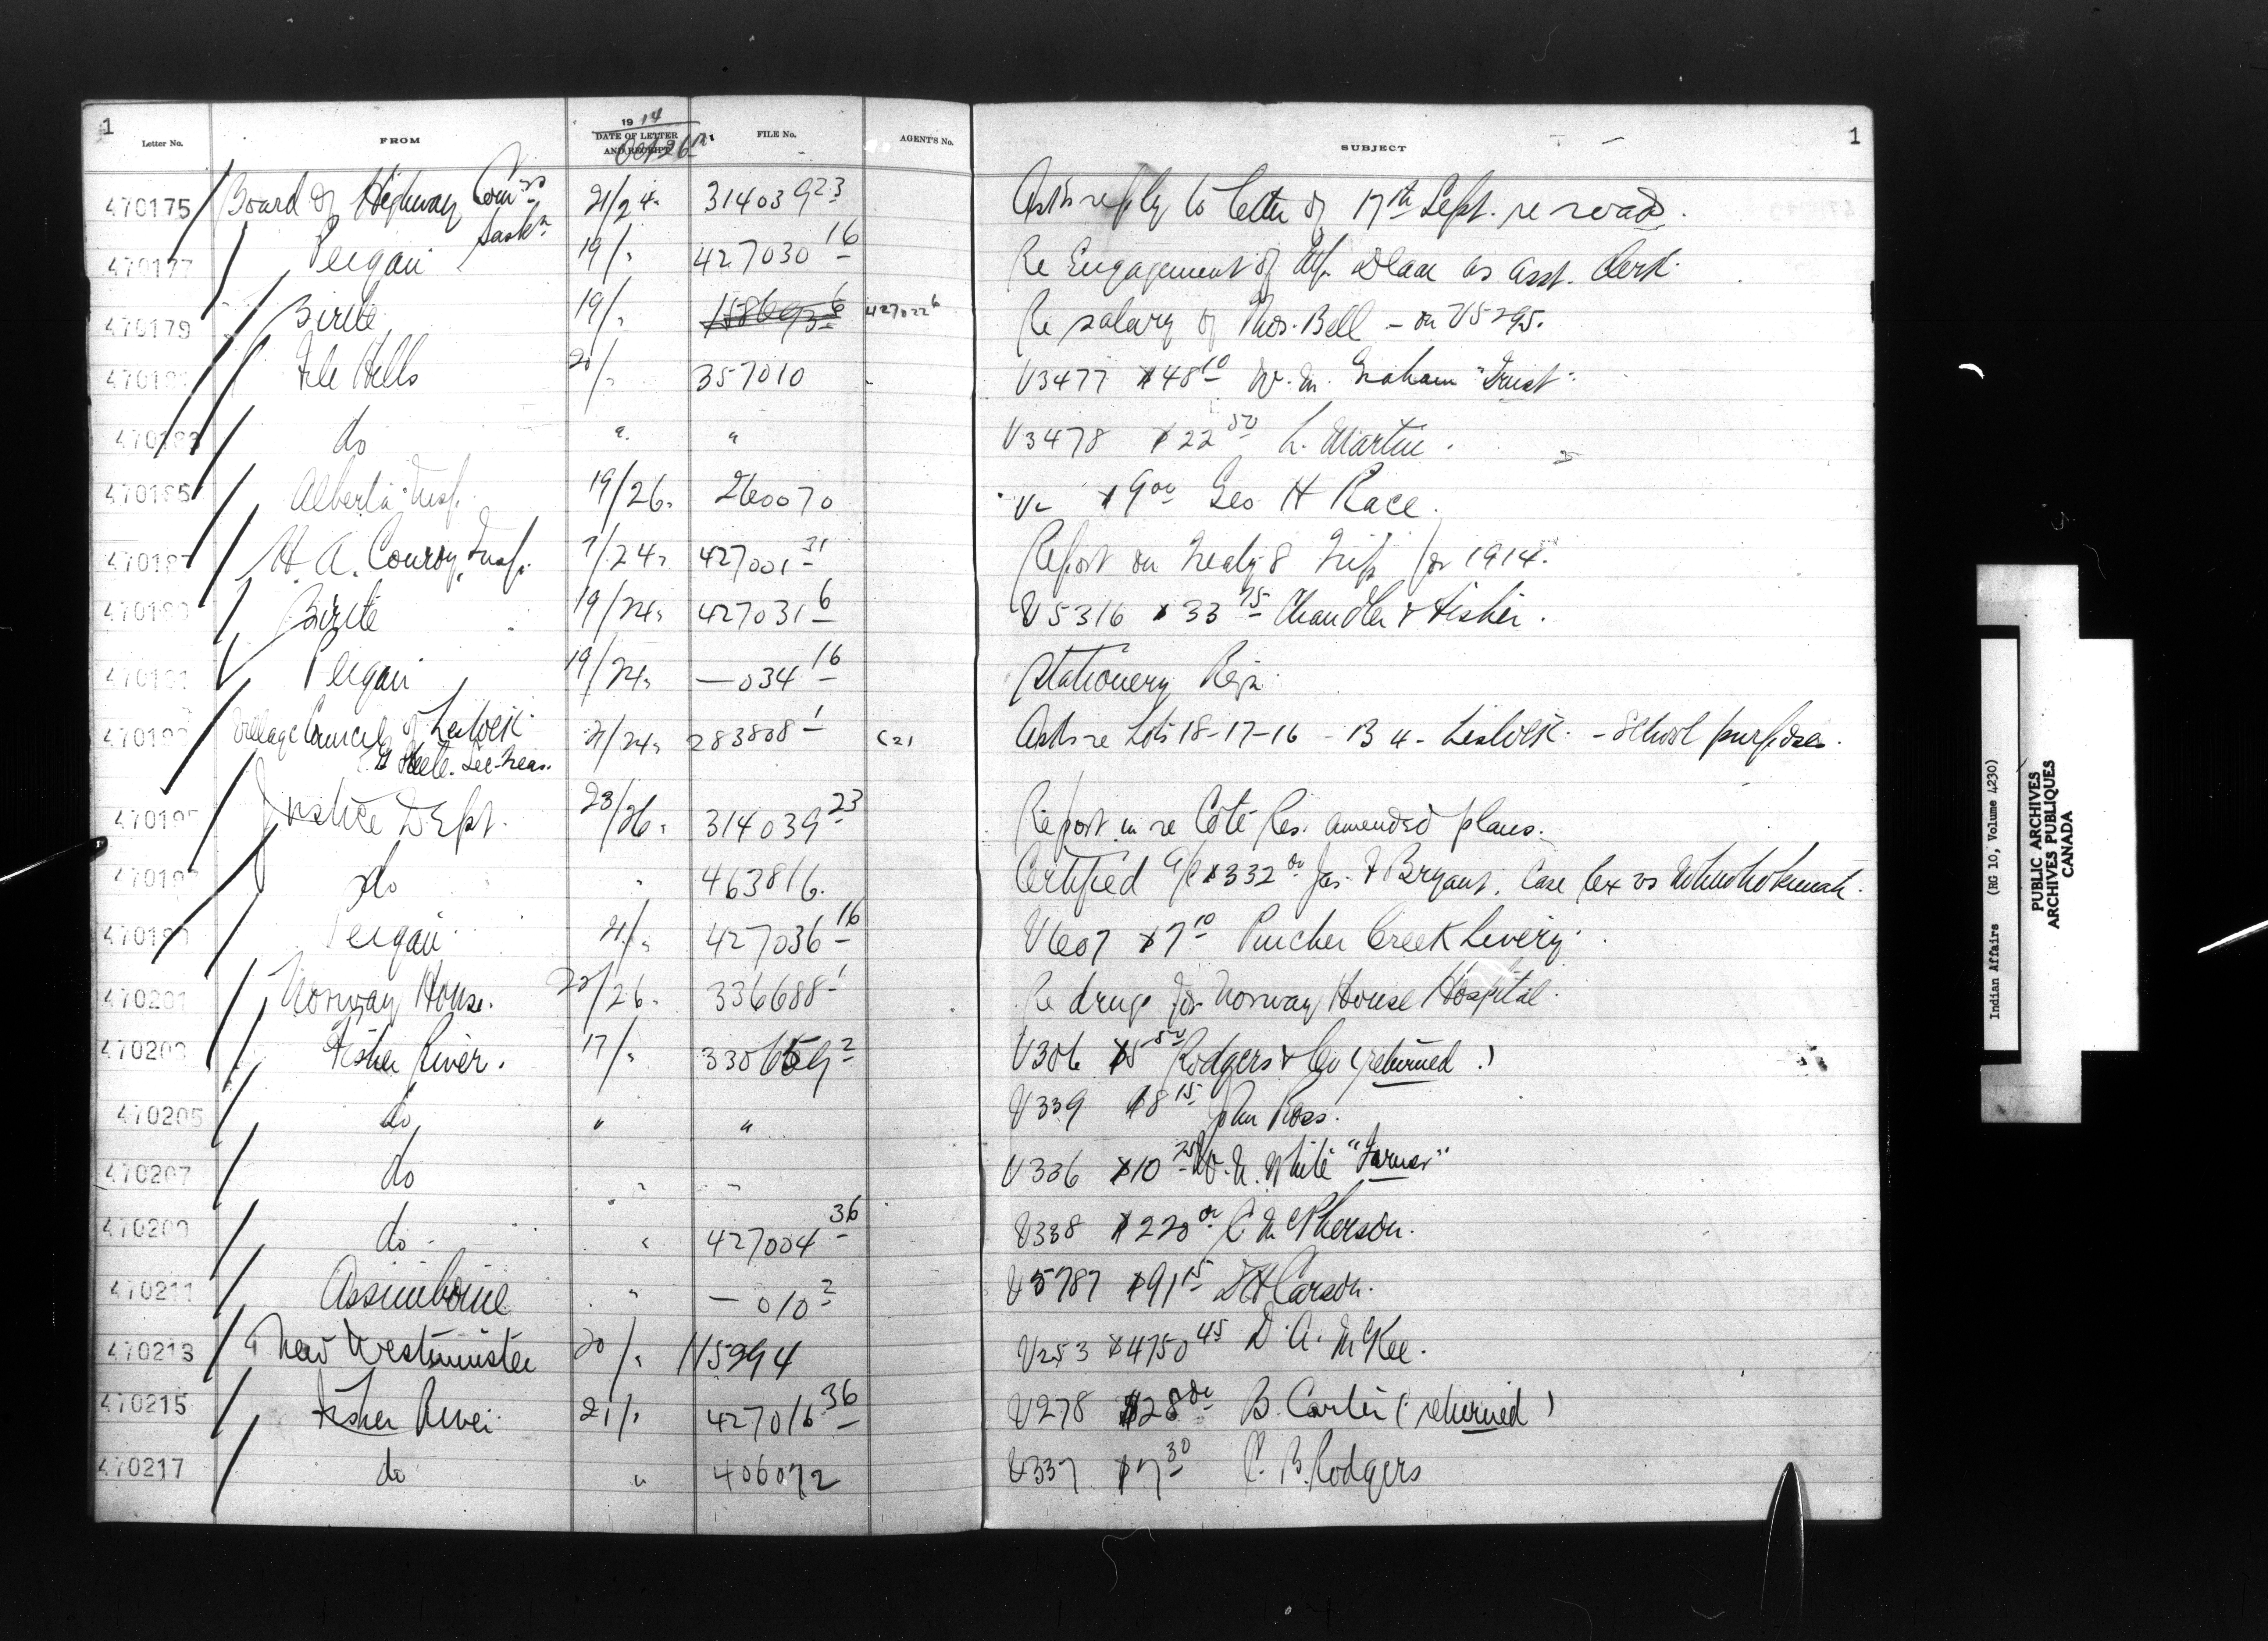 1
Letter No. FROM 1914 DATE OF LETTER AND RECEIPT Oct 26th FILE No. AGENT'S No. SUBJECT 1
470175 Board of Highway Com'rs Sask'n 21/24 314039 23 Asks reply to letter of 17th Sept. re roads.
470177 Peigan 19/" 427030 16 Re Engagement of as asst. Clerk.
470179 Birtle 19/" 427022 6 Re salary of Thos. Bell - on V5295.
File Hills 20/" 357010 V3477 $48 10 W. M. Graham "Trust".
do " " V3478 $22 50 L. Martin.
470185 Alberta Insp. 19/26 260070 V- $9 00 Geo H Race.
H. A. Conroy, Insp. 7/24 427001 31 Report on Treaty 8 Trip for 1914.
Birtle 19/24 427031 6 V5316 $33 75 Chandler & Fisher.
Peigan 19/24 — 034 16 Stationery Reqn.
Village Council of Lestock 21/24 283808 1 (2) Asks re Lots 18-17-16 - B 4 - Lestock - School purposes.
Steele. Sec-Treas.
Justice Dept. 23/26 314039 23 Report in re Cote Res. amended plans.
do " 463816 Certified a/c $332 00 Jas. F Bryant. Case Rex vs
Peigan 21/" 427036 16 V607 $7 10 Pincher Creek Livery.
470201 Norway House. 22/26 336688 1 Re drugs for Norway House Hospital.
470203 Fisher River. 17/" V306 $5 50 Rodgers & Co (returned.)
470205 do " " V339 $8 15 John Ross.
470207 do " " V336 $10 25 W. N. White "Farmer"
470209 do " 427004 36 V338 $220 00 C. McPherson.
470211 Assiniboine " — 010 2 V5787 $91 15 Carson.
470213 New Westminster 20/" 115994 V253 $4750 45 D. A. McKee.
470215 Fisher River 21/" 427016 36 V278 $28 00 B. Carter (returned)
470217 do " 406072 V337 $7 30 C. B. Rodgers
Indian Affairs (RG 10, Volume 4230)
PUBLIC ARCHIVES
ARCHIVES PUBLIQUES
CANADA